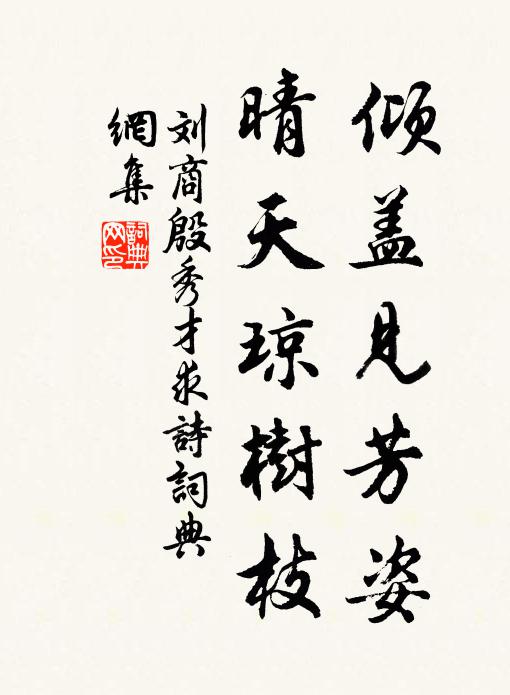 倾盖见芳姿
晴天琼樹枝
刘商殷秀才求詩詞典
網集
詞典
网印